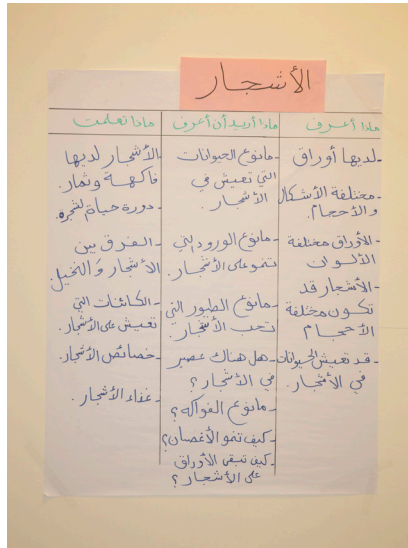 الأشجار
ماذا أعرف
-لديها أوراق
-مختلفة الأشكال
والأحجام.
-الأوراق مختلفة
الألوان
-الأشجار قد
تكون مختلفة
الأحجام
-قد تعيش الحيوانات
في الأشجار.
ماذا أريد أن أعرف
-مانوع الحيوانات
التي تعيش في
الأشجار.
-مانوع الورود التي
تنمو على الأشجار.
-مانوع الطيور التي
تحب الأشجار.
-هل هناك عصير
في الأشجار؟
-مانوع الفواكه؟
-كيف تنمو الأغصان؟
-كيف تبقى الأوراق
على الأشجار؟
ماذا تعلمت
-الأشجار لديها
فاكهة وثمار.
-دورة حياة
-الفرق بين
الأشجار والنخيل.
-الكائنات التي
تعيش على الأشجار.
-خصائص الأشجار.
-غذاء الأشجار.